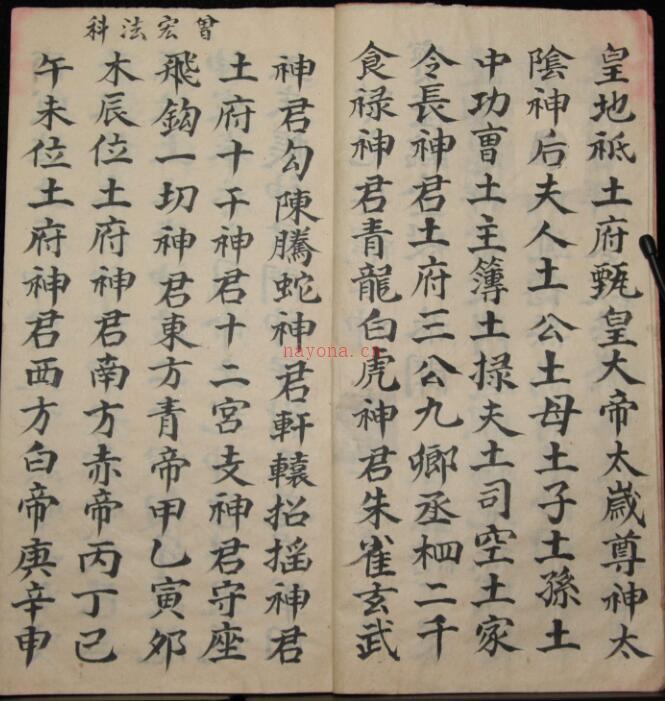 皇地祗土府甄皇大帝太歲尊神太
陰神后夫人土公土母土子土孫土
中功曺土主簿土掾夫土司空土家
令長神君土府三公九卿丞相二千
食禄神君青龍白虎神君朱雀玄武
神君勾陳騰蛇神君軒轅招摇神君
土府十干神君十二宮支神君守座
飛鈎一切神君東方青帝甲乙寅夘
木辰位土府神君南方赤帝丙丁巳
午未位土府神君西方白帝庚辛申
曾宏法科
nayona.cn